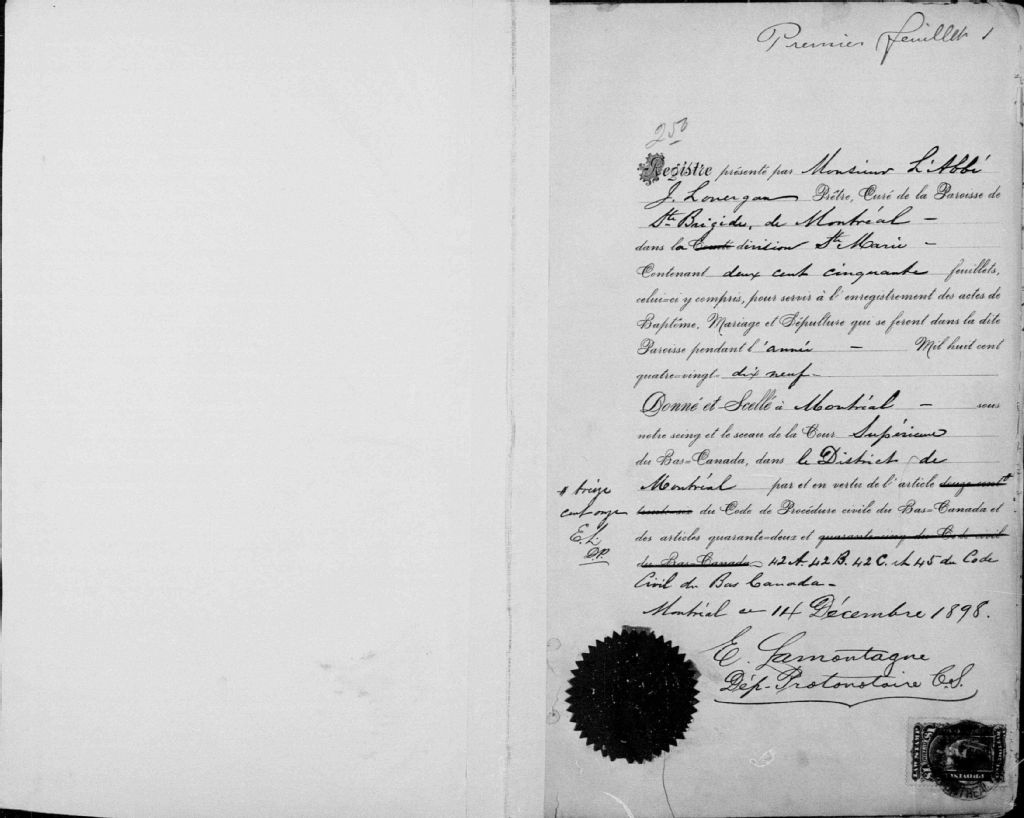 Premier feuillet 1
250
Registre présenté par Monsieur L'Abbé
J. Lonergan Prêtre, Curé de la Paroisse de
Ste Brigide, de Montréal –
dans la Comté division Ste Marie –
Contenant deux cent cinquante feuillets,
celui-ci y compris, pour servir à l'enregistrement des actes de
Baptême, Mariage et Sépulture qui se feront dans la dite
Paroisse pendant l'année – Mil huit cent
quatre-vingt- dix neuf –
Donné et Scellé à Montréal – sous
notre seing et le sceau de la Cour Supérieure
du Bas-Canada, dans le District de
Montréal par et en vertu de l'article
# treize
cent onze
E. L.
DP.
du Code de Procédure civile du Bas-Canada et
des articles quarante-deux et quarante-cinq du Code civil
du Bas-Canada 42 A. 42 B. 42 C. et 45 du Code
Civil du Bas Canada –
Montréal ce 14 Décembre 1898.
E. Lamontagne
Dép-Protonotaire C.S.
LAW STAMP
MONTREAL